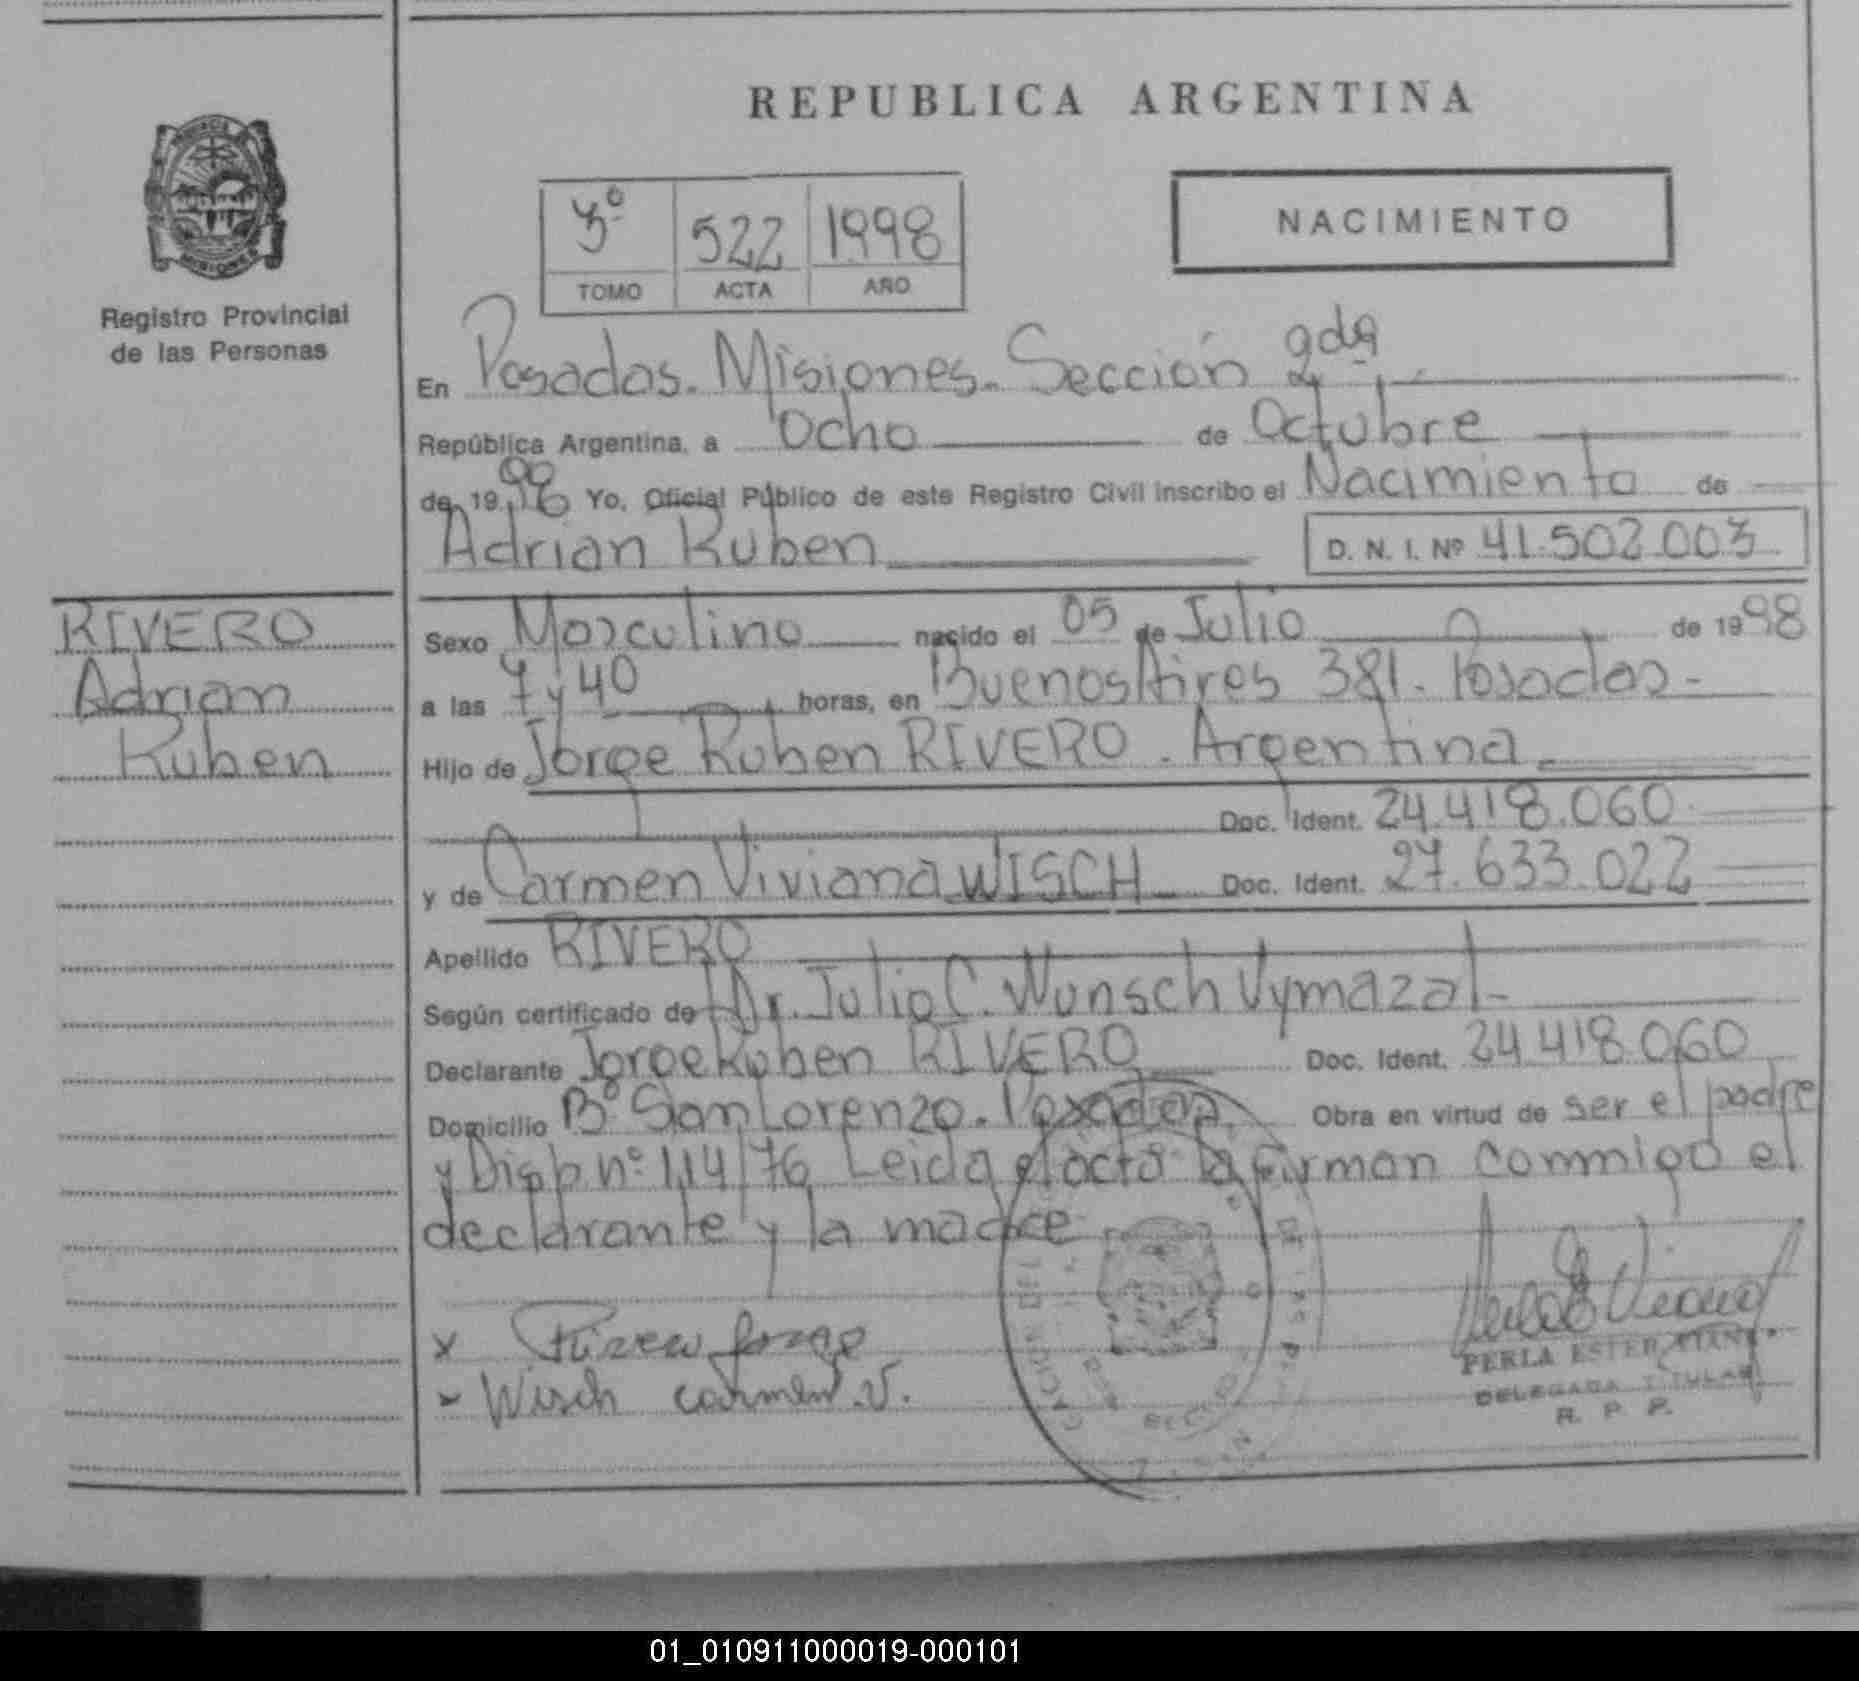 REPUBLICA ARGENTINA
NACIMIENTO
3º 522 1998
TOMO ACTA AÑO
Registro Provincial
de las Personas
En Posadas. Misiones. Sección 2da
República Argentina, a Ocho de Octubre
de 1998 Yo, Oficial Público de este Registro Civil inscribo el Nacimiento de
Adrian Ruben D. N. I. Nº 41.502.003
RIVERO
Adrian
Ruben
Sexo Masculino nacido el 05 de Julio de 1998
a las 7 y 40 horas, en Buenos Aires 381. Posadas-
Hijo de Jorge Ruben RIVERO. Argentina.
Doc. Ident. 24.418.060
y de Carmen Viviana WISCH Doc. Ident. 27.633.022
Apellido RIVERO
Según certificado de Dr. Julio C. Wunsch Vymazal-
Declarante Jorge Ruben RIVERO Doc. Ident. 24.418.060
Domicilio Bº San Lorenzo. Posadas. Obra en virtud de ser el padre
y Disp. nº 114/76 Leida el acta la firman conmigo el
declarante y la madre
x Rivero Jorge
x Wisch carmen V.
PERLA ESTER
DELEGADA TITULAR
R. P. P.
01_010911000019-000101